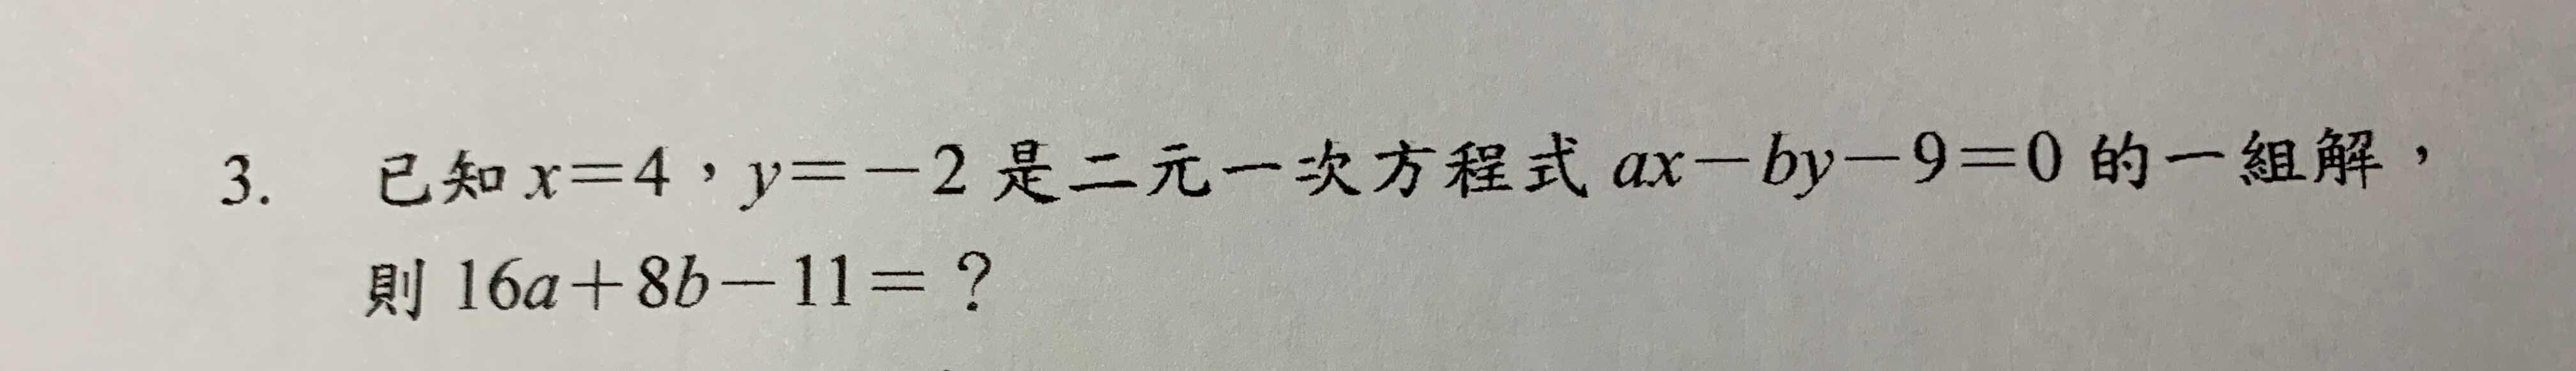 3. 已知 x=4，y=－2 是二元一次方程式 ax－by－9=0 的一組解，
則 16a＋8b－11=？